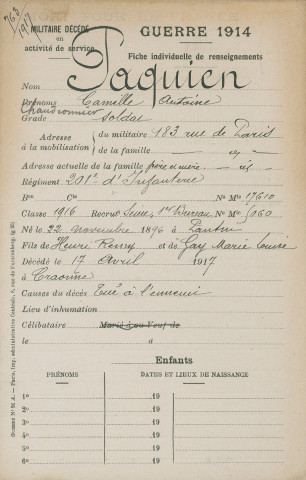 763
1917
MILITAIRE DÉCÉDÉ
en
activité de service
GUERRE 1914
Fiche individuelle de renseignements
Nom Paquien
Prénoms Camille Antoine
Chaudronnier
Grade Soldat
Adresse à la mobilisation du militaire 183 rue de Paris
de la famille id
Adresse actuelle de la famille père et mère id
Régiment 201e d'Infanterie
Bon Cie No Mle 17610
Classe 1916 Recrut Seine 1er Bureau No Mle 5060
Né le 22 novembre 1896 à Pantin
Fils de Henri Remy et de Gay Marie Louise
Décédé le 17 Avril 1917
à Craonne
Causes du décès Tué à l'ennemi
Lieu d'inhumation
Célibataire Marié à ou Veuf de
le à
Enfants
PRÉNOMS DATES ET LIEUX DE NAISSANCE
1o 19
2o 19
3o 19
4o 19
5o 19
6o 19